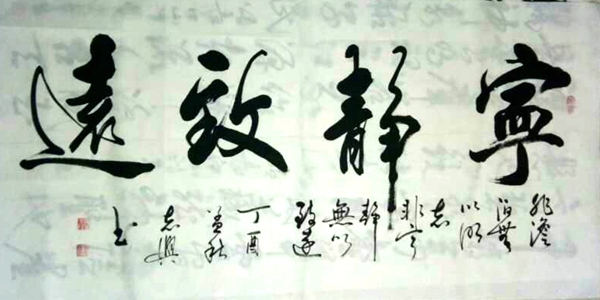 寧靜致遠
非澹
泊無
以明
志
非寧
靜
無以
致遠
丁酉
孟秋
志興
书